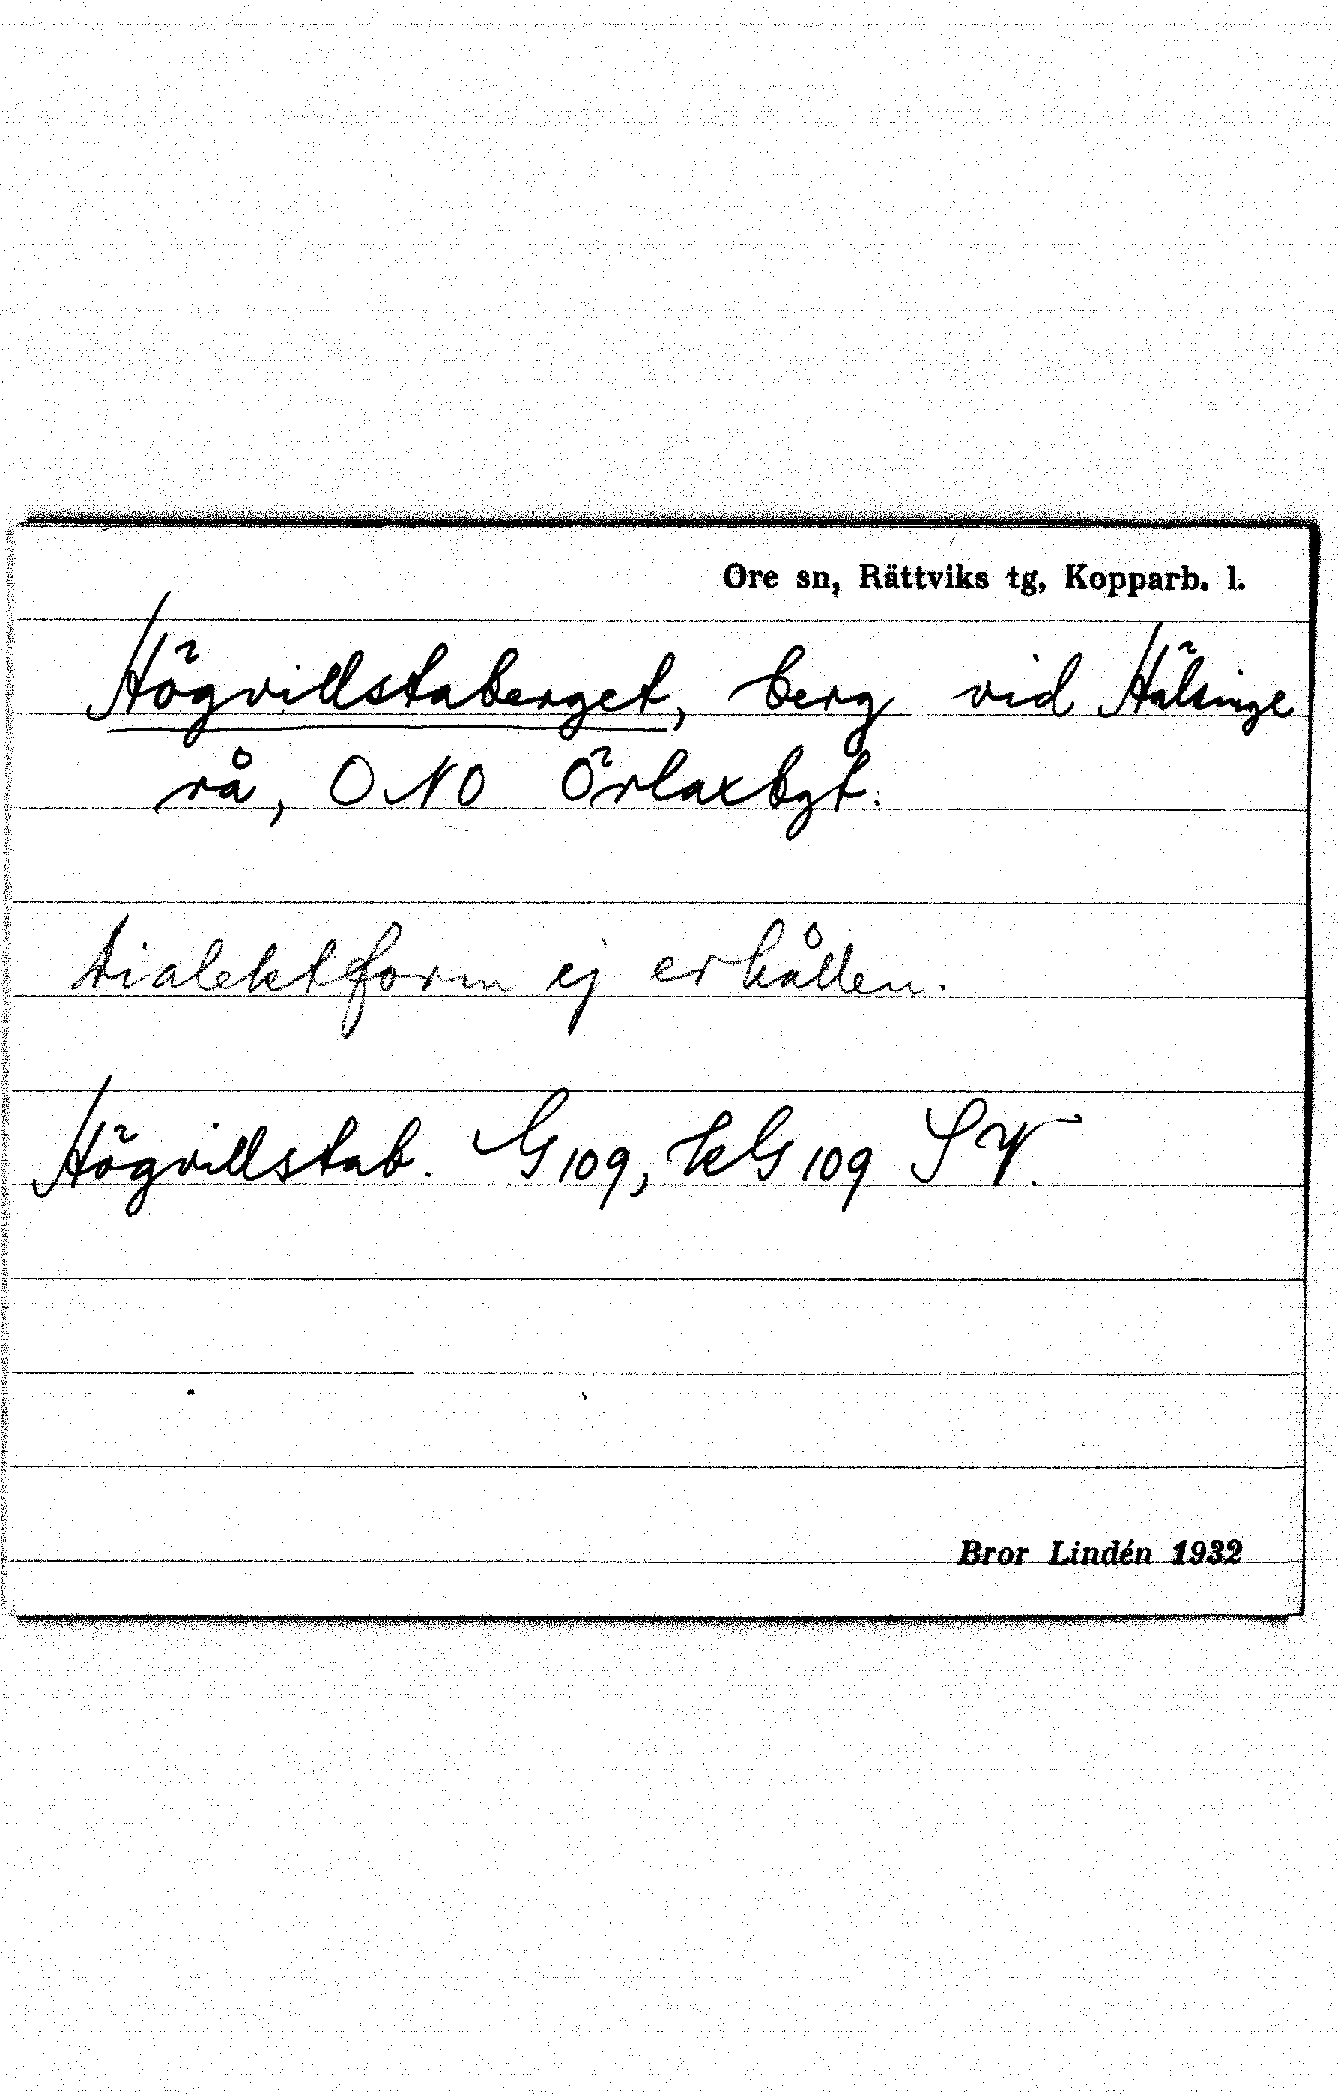 Ore sn, Rättviks tg, Kopparb. l.
Högvillstaberget, berg vid Hälsinge
rå, ONO Örlaxbgt.
Dialektform ej erhållen.
Högvillstab. G 109, kG 109 SV.
Bror Lindén 1932